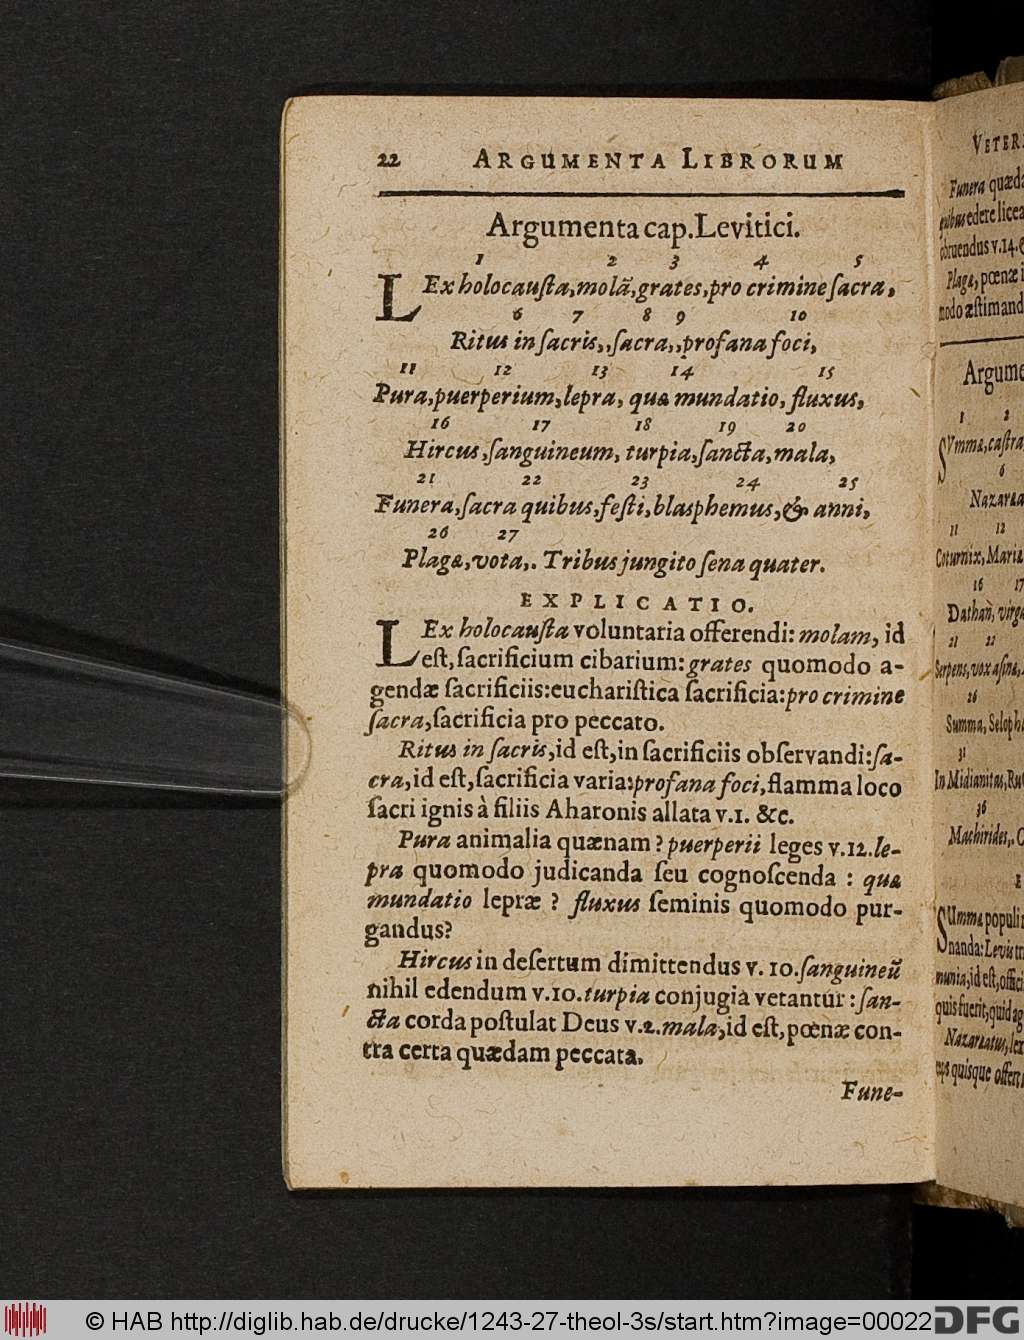 22 ARGUMENTA LIBRORUM
Argumenta cap. Levitici.
1 2 3 4 5
LEx holocauſta, molã, grates, pro crimine ſacra,
6 7 8 9 10
Ritus in ſacris,, ſacra,, profana foci,
11 12 13 14 15
Pura, puerperium, lepra, quæ mundatio, fluxus,
16 17 18 19 20
Hircus, ſanguineum, turpia, ſancta, mala,
21 22 23 24 25
Funera, ſacra quibus, feſti, blasphemus, & anni,
26 27
Plagæ, vota,. Tribus jungito ſena quater.
EXPLICATIO.
LEx holocauſta voluntaria offerendi: molam, id
eſt, ſacrificium cibarium: grates quomodo a-
gendæ ſacrificiis: euchariſtica ſacrificia: pro crimine
ſacra, ſacrificia pro peccato.
Ritus in ſacris, id eſt, in ſacrificiis obſervandi: ſa-
cra, id eſt, ſacrificia varia: profana foci, flamma loco
ſacri ignis à filiis Aharonis allata v. 1. &c.
Pura animalia quænam? puerperii leges v. 12. le-
pra quomodo judicanda ſeu cognoſcenda : quæ
mundatio lepræ ? fluxus ſeminis quomodo pur-
gandus?
Hircus in deſertum dimittendus v. 10. ſanguineũ
nihil edendum v. 10. turpia conjugia vetantur : ſan-
cta corda poſtulat Deus v. 2. mala, id eſt, pœnæ con-
tra certa quædam peccata.
Fune-
VETER
Funera quæda
quibus edere licea
obruendus v. 14.
Plagæ, pœnæ i
modo æſtimand
Argume
1 2
SUmma, caſtra
6
Nazaræa
11 12
Coturnix, Mariæ
16 17
Dathan, virga
21 22
Serpens, vox aſinæ,
26
Summa, Selopha
31
In Midianitas, Ru
36
Machirides,. C
E
SUmma populi
nanda: Levis tri
munia, id eſt, offici
quis fuerit, quid ag
Nazaræatus, lex
quisque offert
© HAB http://diglib.hab.de/drucke/1243-27-theol-3s/start.htm?image=00022 DFG